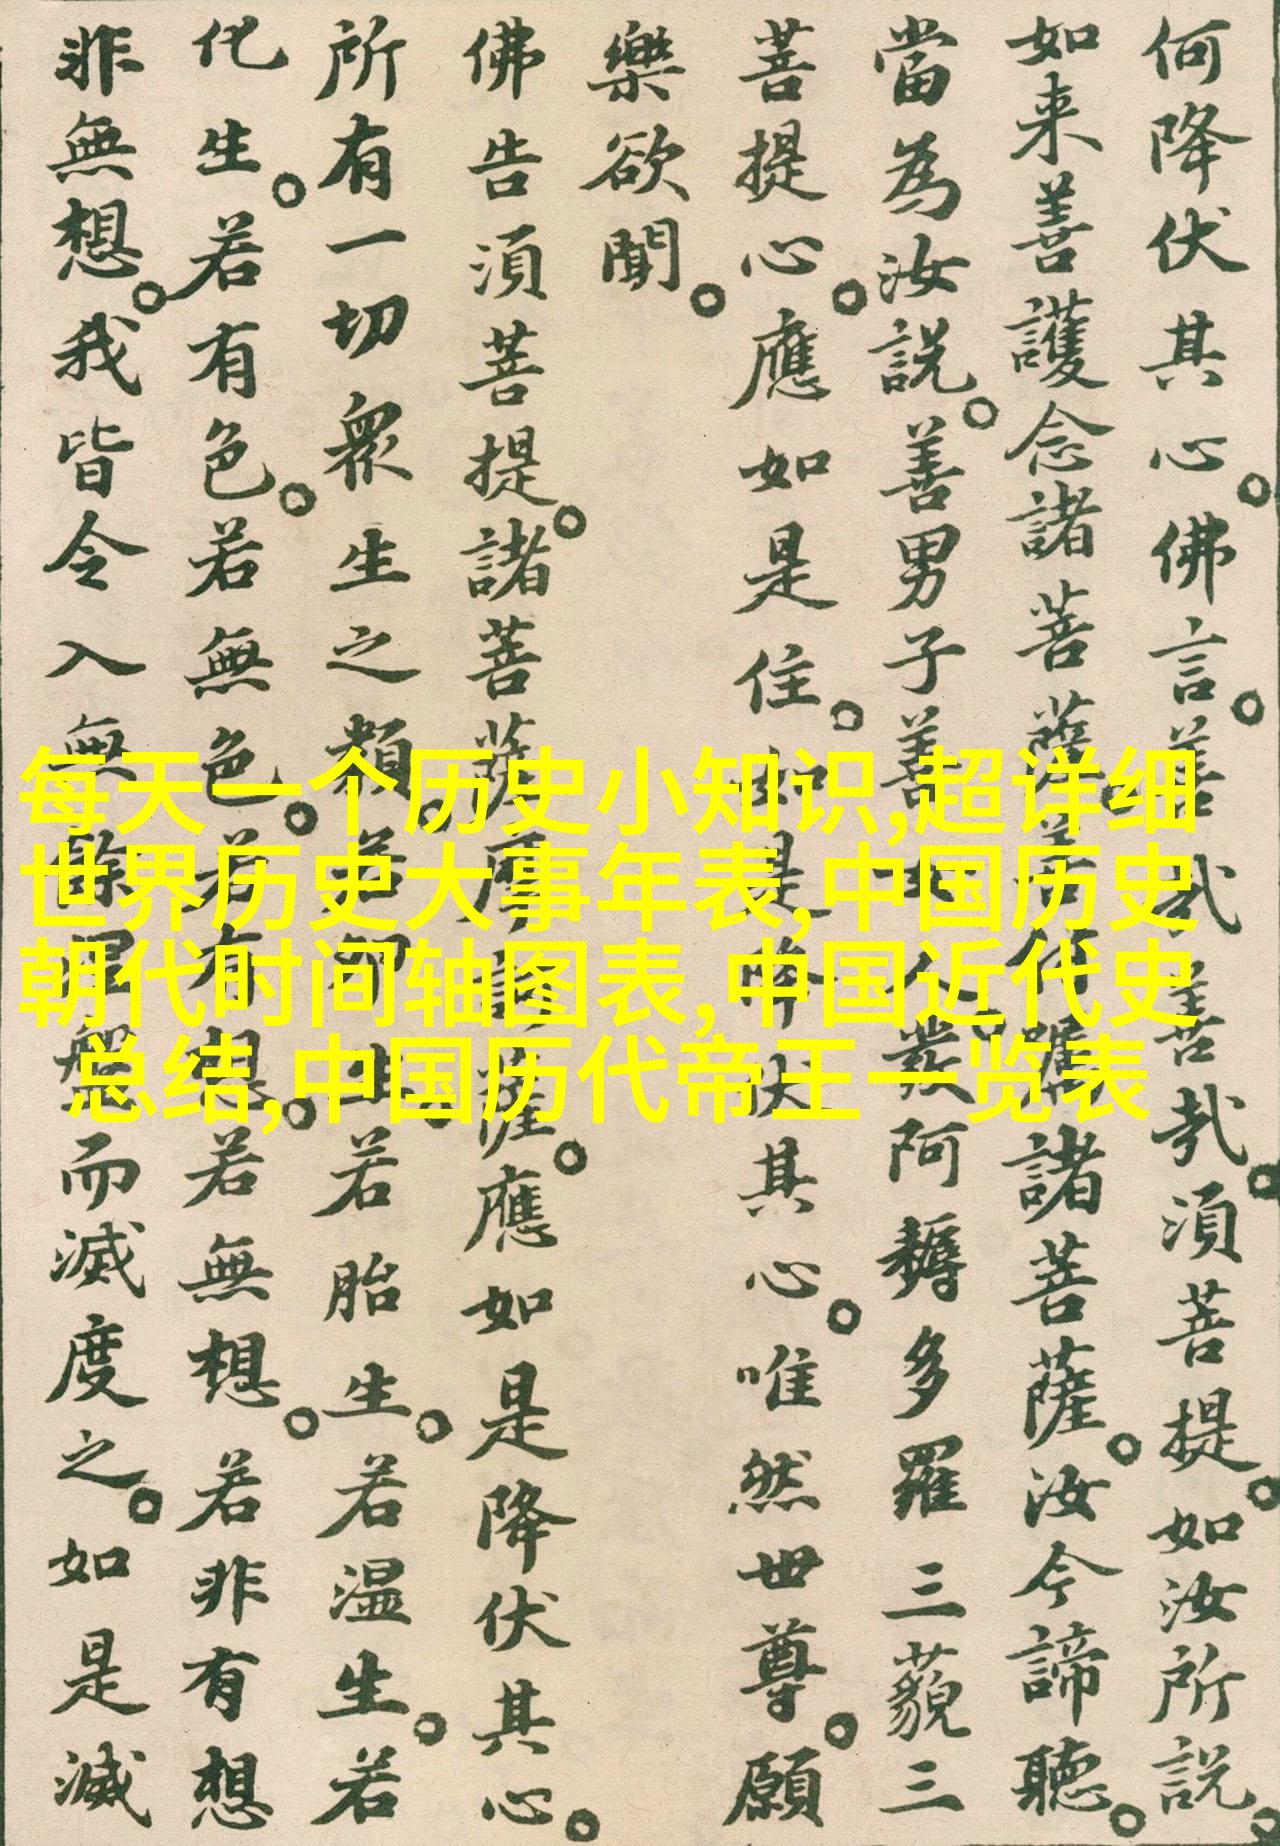 何降伏其心。佛言。善哉善哉。須菩提。如汝所説。
如来善護念諸菩薩。善付囑諸菩薩。汝今諦聽。
當為汝説。善男子善女人。發阿耨多羅三藐三
菩提心。應如是住。如是降伏其心。唯然世尊。願
樂欲聞。
佛告須菩提。諸菩薩摩訶薩。應如是降伏其心。
所有一切眾生之類。若卵生。若胎生。若温生。若
化生。若有色。若無色。若有想。若無想。若非有想
非無想。我皆令入無餘涅槃而滅度之。如是滅
每天一个历史小知识,超详细
世界历史大事年表,中国历史
朝代时间轴图表,中国近代史
总结,中国历代帝王一览表